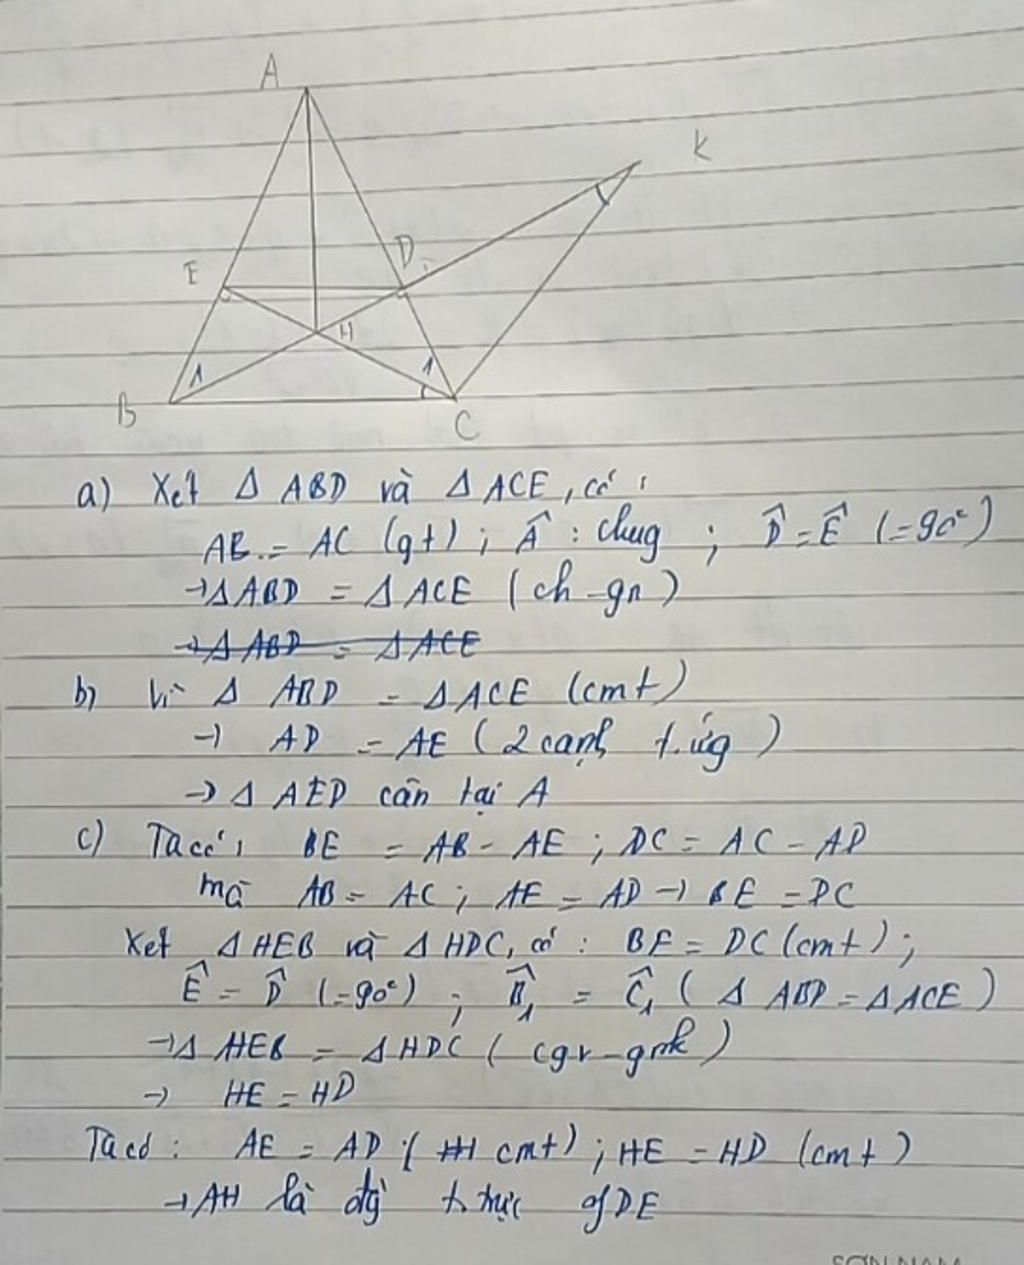 A
K
E
D
1
H
1
1
B
C
a) Xét Δ ABD và Δ ACE, có:
AB = AC (gt) ; Â : chug ; D̂ = Ê (=90°)
→ Δ ABD = Δ ACE (ch-gn)
→ Δ ABD = Δ ACE
b) Vì Δ ABD = Δ ACE (cmt)
→ AD = AE (2 cạnh t.ứg)
→ Δ AED cân tại A
c) Ta có: BE = AB - AE ; DC = AC - AD
mà AB = AC ; AE = AD → BE = DC
Xét Δ HEB và Δ HDC, có : BE = DC (cmt) ;
Ê = D̂ (=90°) ; B̂₁ = Ĉ₁ (Δ ABD = Δ ACE)
→ Δ HEB = Δ HDC (cgv-gnk)
→ HE = HD
Ta có : AE = AD (cmt) ; HE = HD (cmt)
→ AH là đg t.trực of DE